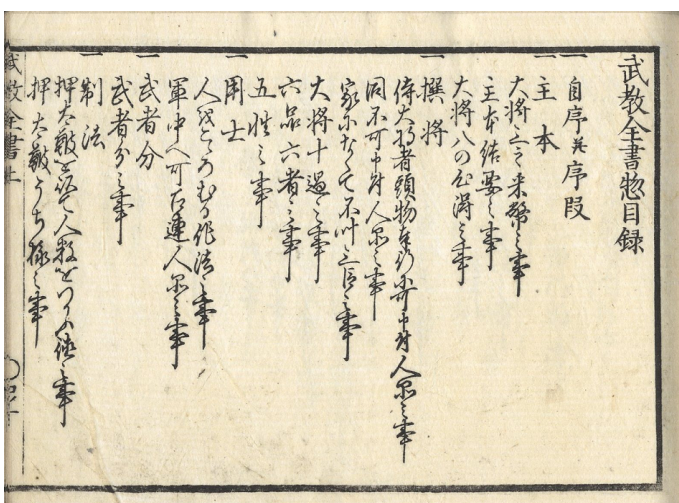 武教全書惣目録
一 自序并序段
一 主本
大将三之采幣之事
主本結要之事
大将八の心得之事
一 撰将
侍大将者頭物奉行不可申付人品之事
同不可申付人品之事
家になくて不叶三臣之事
大将十過之事
六品六者之事
五性之事
一 用士
人をもとむる作法之事
軍中へ可召連人品之事
一 武者分
武者分之事
一 制法
押太鼓を以て人数をつかふ
押太鼓うち様之事
武教全書上